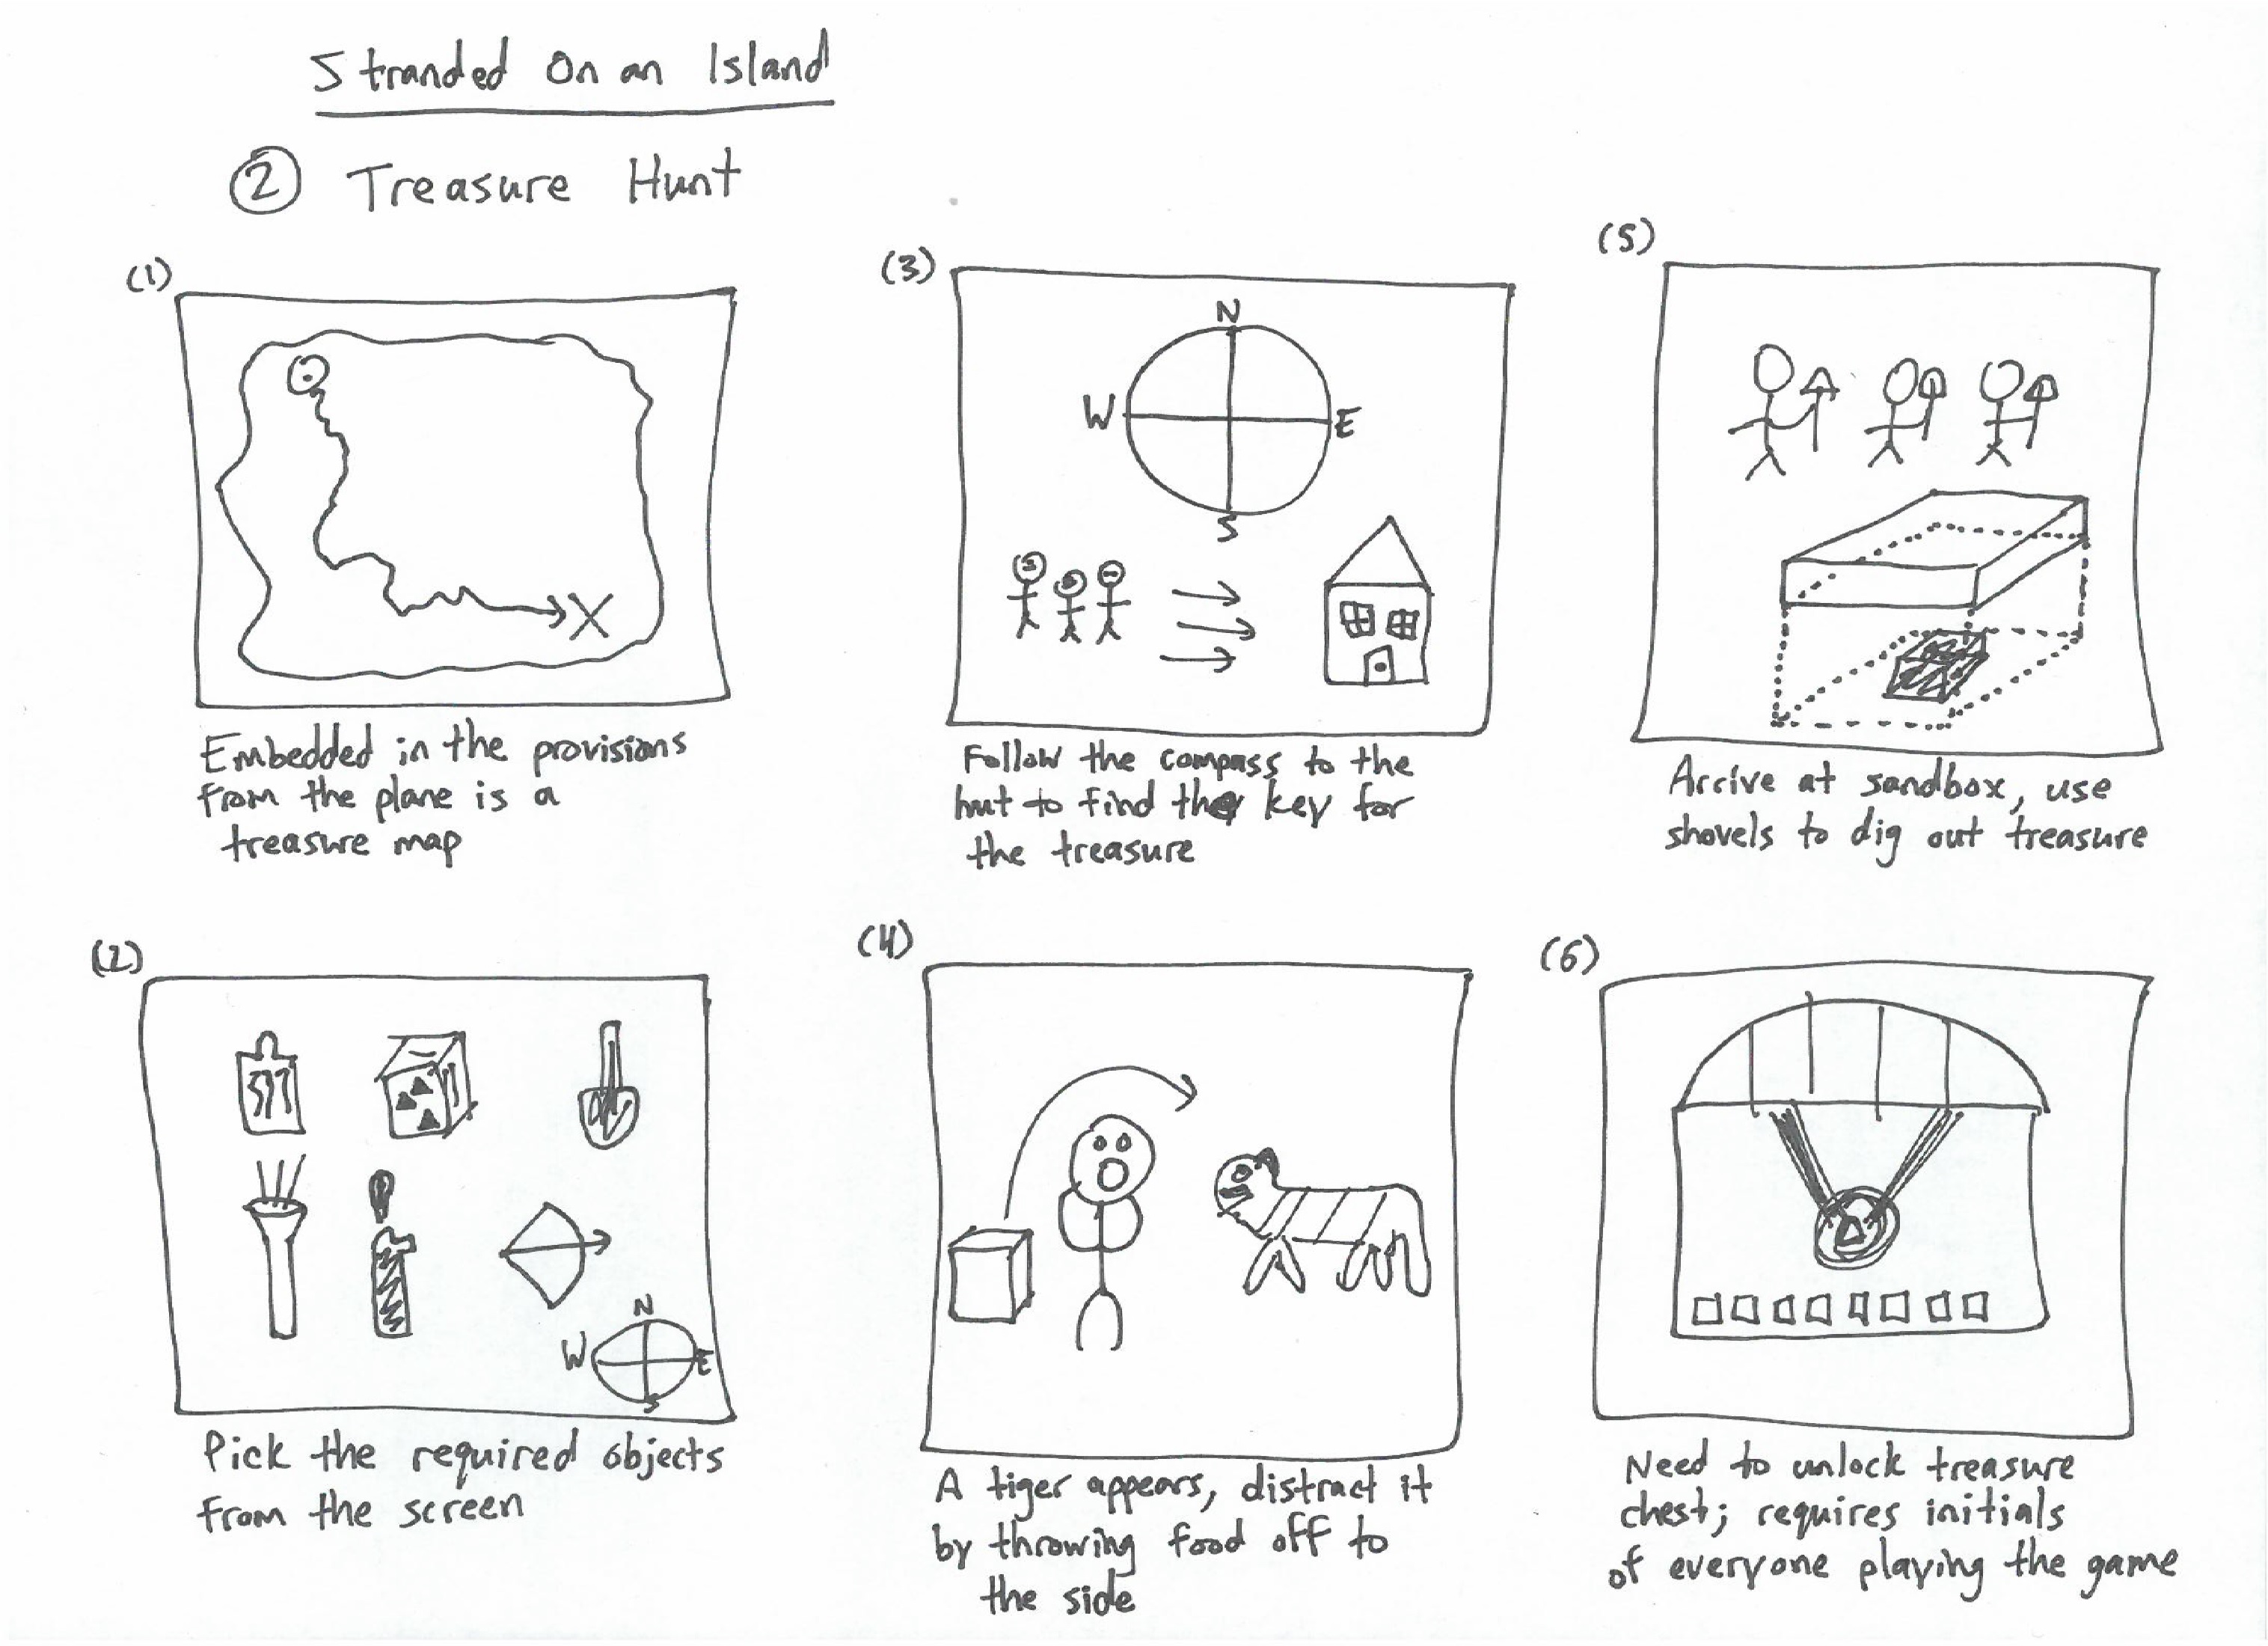 Stranded On an Island
2 Treasure Hunt
(1)
Embedded in the provisions
from the plane is a
treasure map
(2)
N
W E
S
Pick the required objects
from the screen
(3)
N
W E
S
Follow the compass to the
hut to find the key for
the treasure
(4)
A tiger appears, distract it
by throwing food off to
the side
(5)
Arrive at sandbox, use
shovels to dig out treasure
(6)
Need to unlock treasure
chest; requires initials
of everyone playing the game